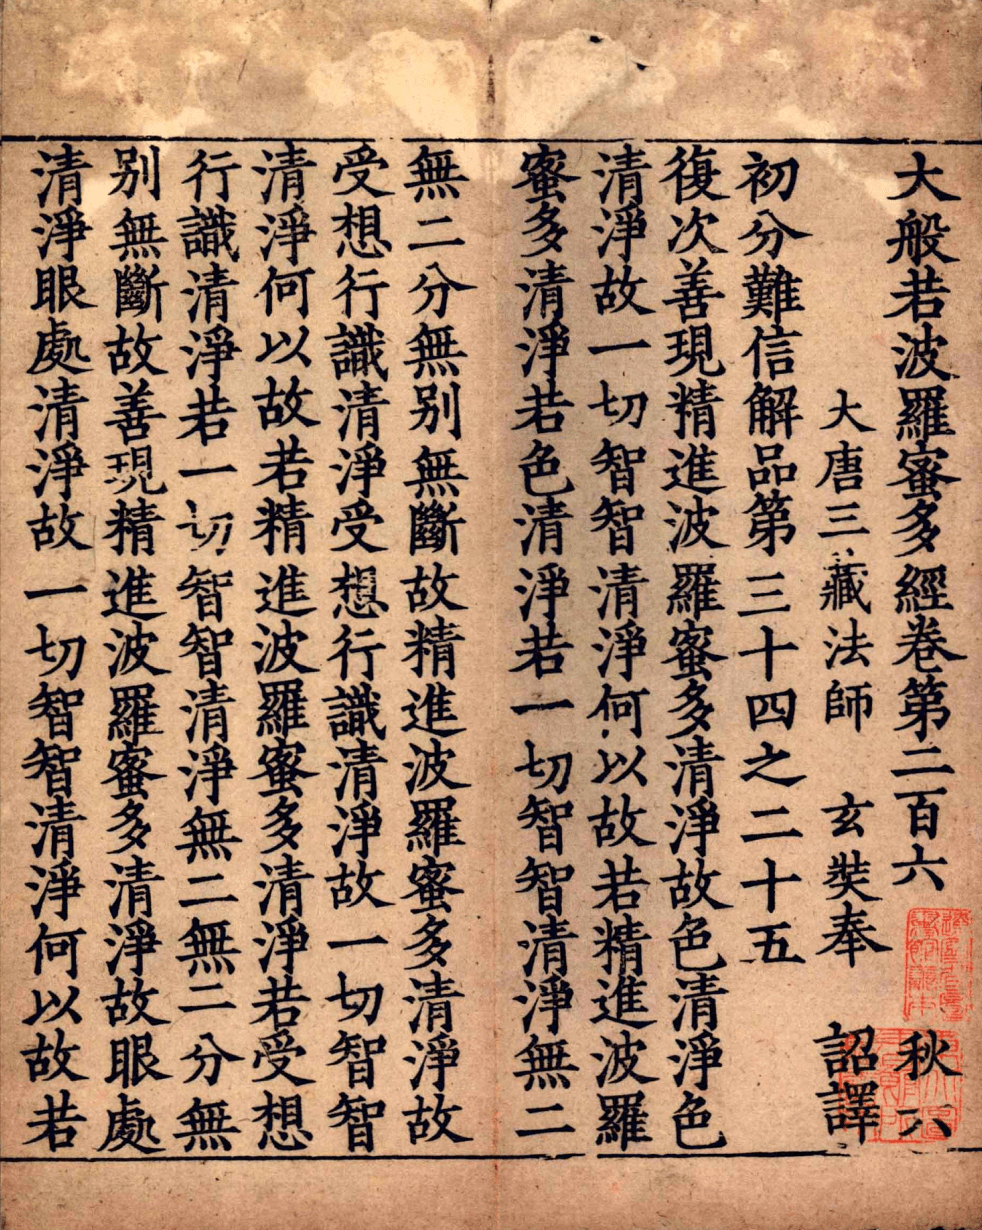 大般若波羅蜜多經卷第二百六 秋六
大唐三藏法師 玄奘奉 詔譯
初分難信解品第三十四之二十五
復次善現精進波羅蜜多清淨故色清淨色
清淨故一切智智清淨何以故若精進波羅
蜜多清淨若色清淨若一切智智清淨無二
無二分無別無斷故精進波羅蜜多清淨故
受想行識清淨受想行識清淨故一切智智
清淨何以故若精進波羅蜜多清淨若受想
行識清淨若一切智智清淨無二無二分無
別無斷故善現精進波羅蜜多清淨故眼處
清淨眼處清淨故一切智智清淨何以故若